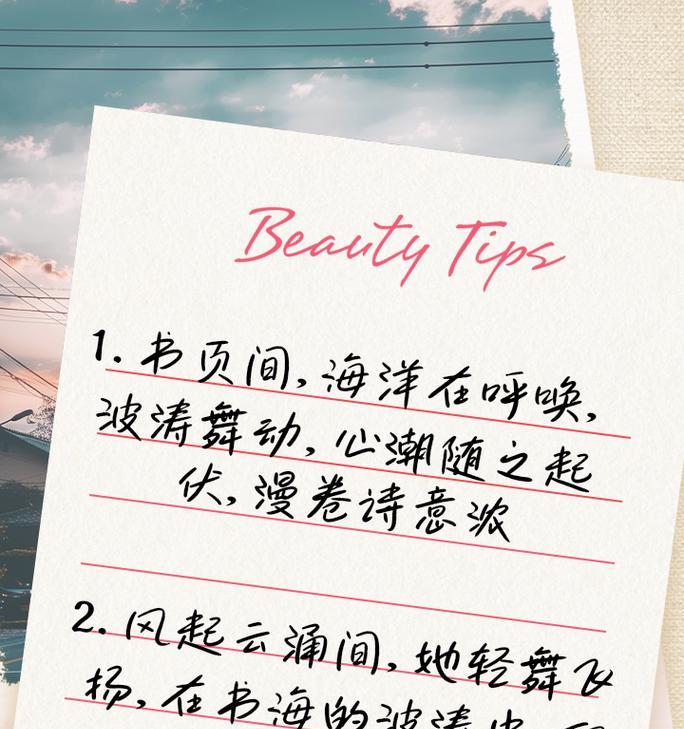 Beauty Tips
1. 书页间,海洋在呼唤,
波涛舞动,心潮随之起
伏,漫卷诗意浓
2. 风起云涌间,她轻舞飞
扬,在书海的波涛中,